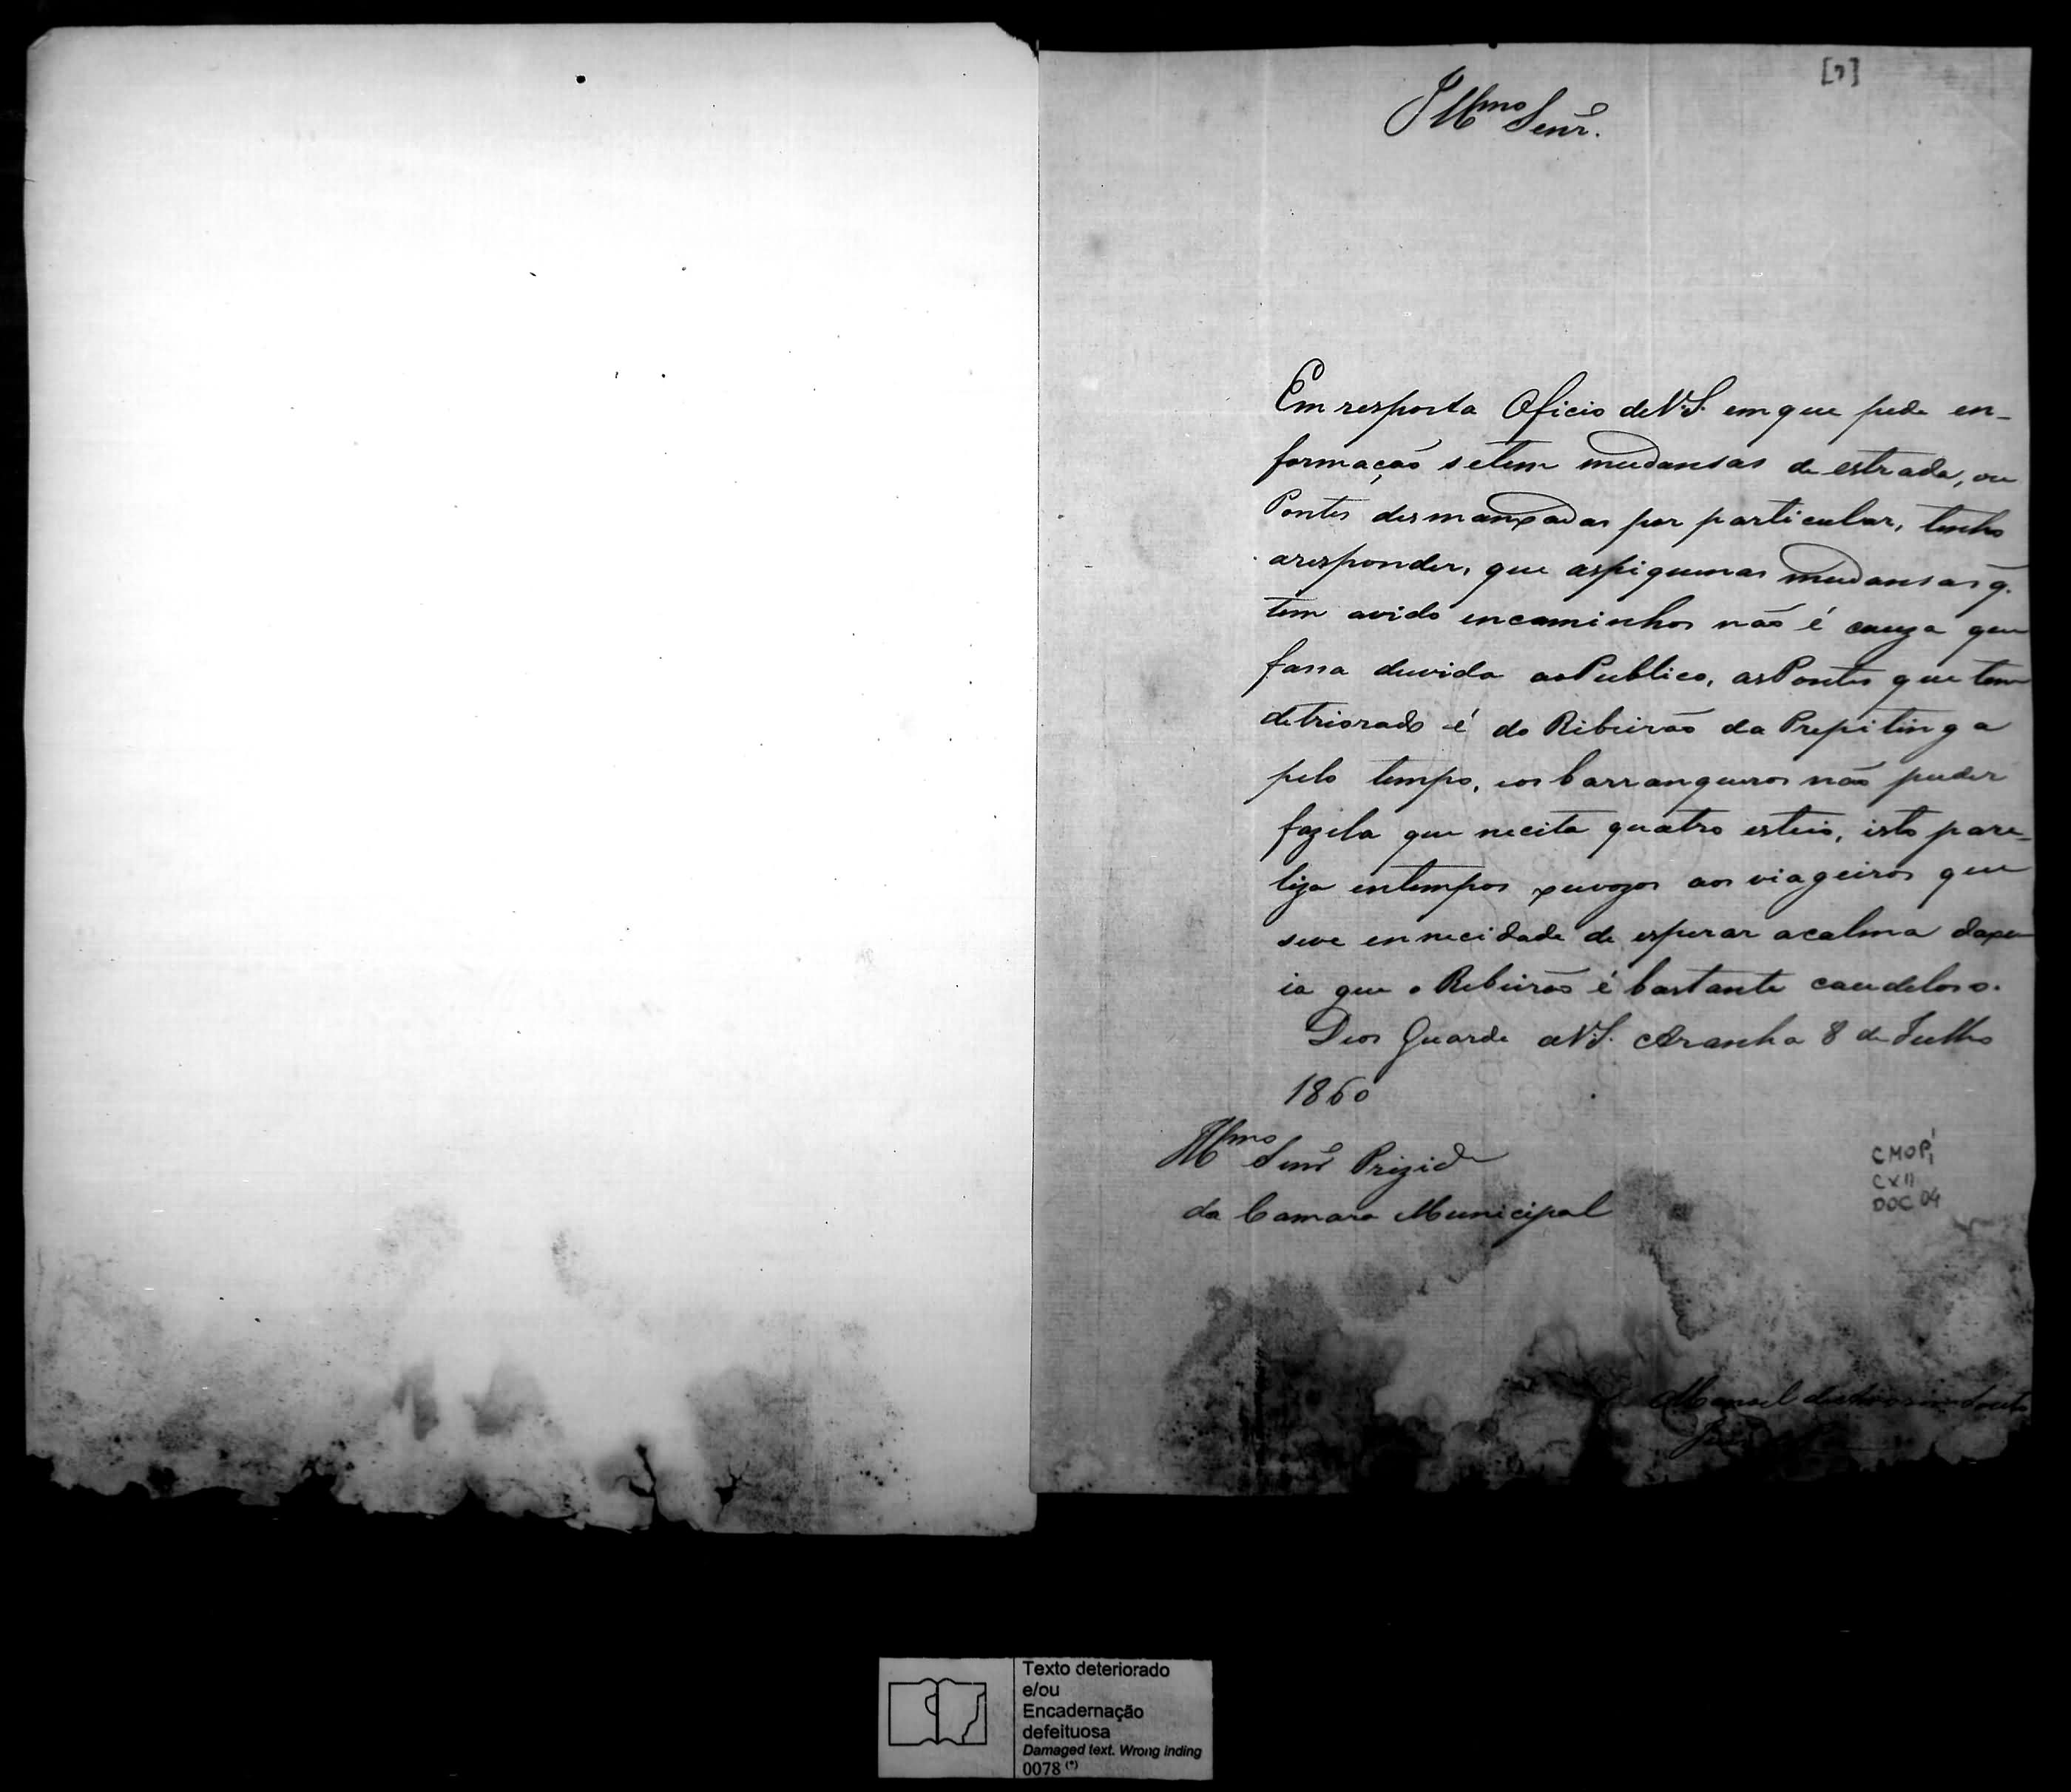 [7]
Illmo Senr.
Em resposta Oficio de V.S. em que pede en-
formação setem mudansas de estrada, ou
Pontes desmanxadas por particular, tenho
aresponder, que aspiquenas mudansas q.
tem avido encaminhos não é cauza que
fassa duvida aoPublico, asPontes que tem
detriorado é do Ribeirão da Prepitinga
pelo tempo, eos barranqueiros não puder
fazela que necita quatro esteios, isto para-
liza entempos xuvozos aos viageiros que
seve ennecidade de esperar acalma daxu
ia que o Ribeirão é bastante caudeloso.
Deos Guarde aV.S. Aranha 8 de Julho
1860
Illmo Senr Prizid
da Camara Municipal
CMOP
CXII
DOC 04
Manoel
Texto deteriorado
e/ou
Encadernação
defeituosa
Damaged text. Wrong inding
0078 (*)